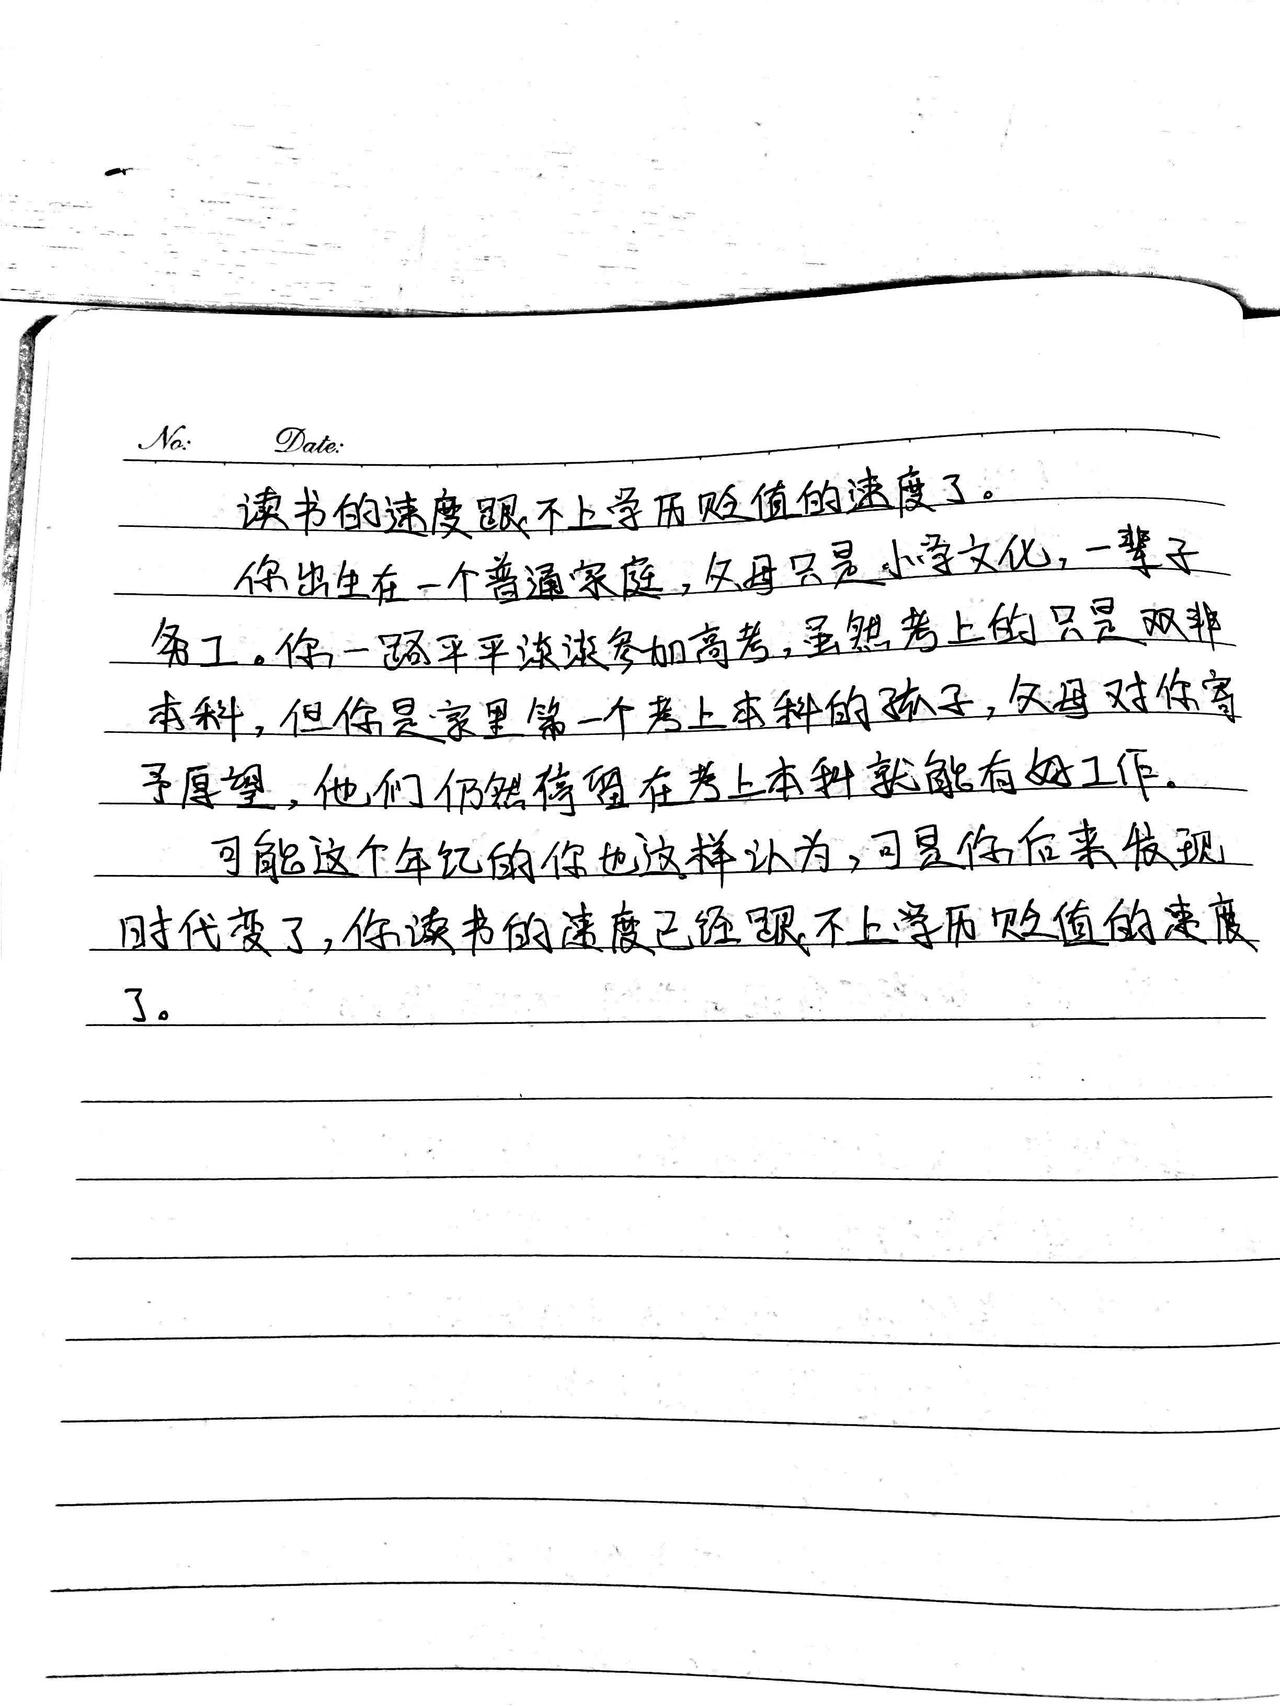 No: Date:
读书的速度跟不上学历贬值的速度了。
你出生在一个普通家庭,父母只是小学文化,一辈子
务工。你一路平平淡淡参加高考,虽然考上的只是双非
本科,但你是家里第一个考上本科的孩子,父母对你寄
予厚望,他们仍然停留在考上本科就能有好工作.
可能这个年纪的你也这样认为,可是你后来发现
时代变了,你读书的速度已经跟不上学历贬值的速度
了。